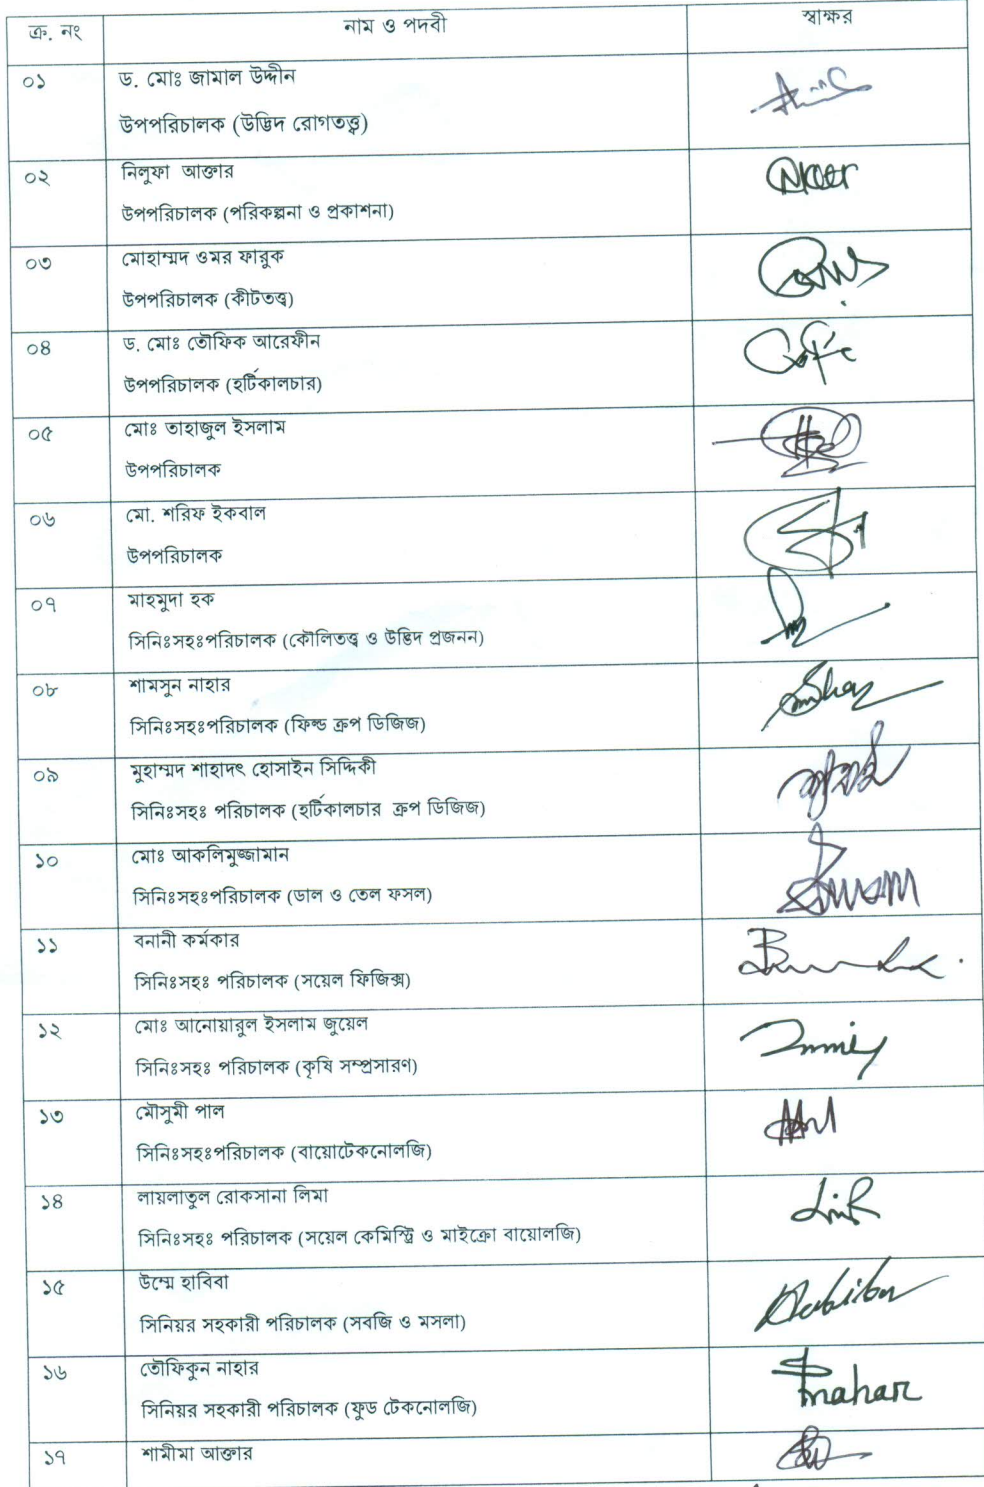 ক্র. নং নাম ও পদবী স্বাক্ষর
০১ ড. মোঃ জামাল উদ্দীন
উপপরিচালক (উদ্ভিদ রোগতত্ত্ব)
০২ নিলুফা আক্তার
উপপরিচালক (পরিকল্পনা ও প্রকাশনা)
০৩ মোহাম্মদ ওমর ফারুক
উপপরিচালক (কীটতত্ত্ব)
০৪ ড. মোঃ তৌফিক আরেফীন
উপপরিচালক (হর্টিকালচার)
০৫ মোঃ তাহাজুল ইসলাম
উপপরিচালক
০৬ মো. শরিফ ইকবাল
উপপরিচালক
০৭ মাহমুদা হক
সিনিঃসহঃপরিচালক (কৌলিতত্ত্ব ও উদ্ভিদ প্রজনন)
০৮ শামসুন নাহার
সিনিঃসহঃপরিচালক (ফিল্ড ক্রপ ডিজিজ)
০৯ মুহাম্মদ শাহাদৎ হোসাইন সিদ্দিকী
সিনিঃসহঃ পরিচালক (হর্টিকালচার ক্রপ ডিজিজ)
১০ মোঃ আকলিমুজ্জামান
সিনিঃসহঃপরিচালক (ডাল ও তেল ফসল)
১১ বনানী কর্মকার
সিনিঃসহঃ পরিচালক (সয়েল ফিজিক্স)
১২ মোঃ আনোয়ারুল ইসলাম জুয়েল
সিনিঃসহঃ পরিচালক (কৃষি সম্প্রসারণ)
১৩ মৌসুমী পাল
সিনিঃসহঃপরিচালক (বায়োটেকনোলজি)
১৪ লায়লাতুল রোকসানা লিমা
সিনিঃসহঃ পরিচালক (সয়েল কেমিস্ট্রি ও মাইক্রো বায়োলজি)
১৫ উম্মে হাবিবা Habiba
সিনিয়র সহকারী পরিচালক (সবজি ও মসলা)
১৬ তৌফিকুন নাহার nahar
সিনিয়র সহকারী পরিচালক (ফুড টেকনোলজি)
১৭ শামীমা আক্তার